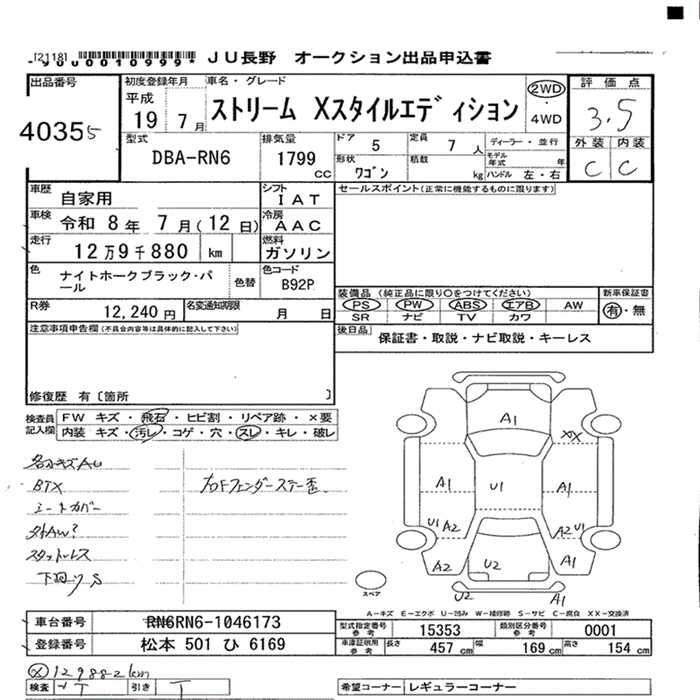 [2118]
*9000010999*
JU長野 オークション出品申込書
出品番号
40355
初度登録年月
平成
19 7月
車名・グレード
ストリーム Xスタイルエディション
2WD
・
4WD
評価点
3.5
外装 内装
C C
型式
DBA-RN6
排気量
1799
CC
ドア 5
定員 7 人
形状 ワゴン
積載 kg
ディーラー・並行
モデル年式 年
ハンドル 左・右
車歴
自家用
シフト
IAT
車検
令和 8年 7月(12日)
冷房
AAC
走行
12万9千880 km
燃料
ガソリン
色
ナイトホークブラック・パール
色替
色コード
B92P
R券
12,240円
名変通知期限 月 日
セールスポイント(正常に機能するものに限ります)
装備品 (純正品に限り○をつけてください)
PS PW ABS エアB AW
SR ナビ TV カワ
新車保証書
有・無
後日品
保証書・取説・ナビ取説・キーレス
注意事項申告欄(不具合内容等は具体的に記入して下さい)
修復歴 有〔箇所 〕
検査員記入欄
FW キズ・飛石・ヒビ割・リペア跡・×要
内装 キズ・汚レ・コゲ・穴・スレ・キレ・破レ
BTX
シートカバー
スタットレス
下廻りS
A1
XX
A1
U1
A1
U1 A2
A2 U1
A2
U2
A1
U2
A1
スペア
A−キズ E−エクボ U−凹み W−補修跡 S−サビ C−腐食 XX−交換済
車台番号
RN6RN6-1046173
登録番号
松本 501 ひ 6169
型式指定番号 参考
15353
類別区分番号 参考
0001
車庫証明用 参考
長さ 457 cm
幅 169 cm
高さ 154 cm
129882km
検査
引き
希望コーナー
レギュラーコーナー